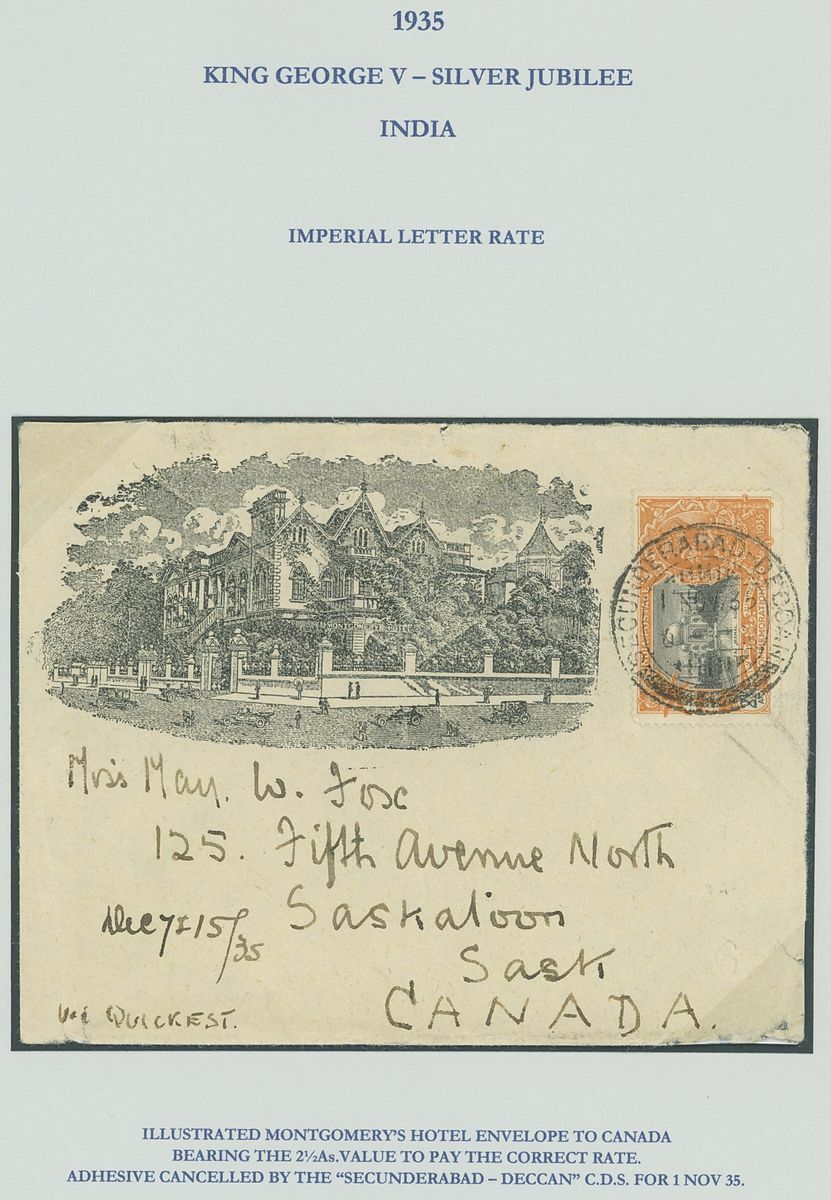 1935
KING GEORGE V – SILVER JUBILEE
INDIA
IMPERIAL LETTER RATE
SECUNDERABAD-DECCAN
1935
Miss May. W. Fox
125. Fifth Avenue North
Saskatoon
Dec 7 & 15/35
Sask
CANADA.
via QUICKEST.
ILLUSTRATED MONTGOMERY'S HOTEL ENVELOPE TO CANADA
BEARING THE 2½As.VALUE TO PAY THE CORRECT RATE.
ADHESIVE CANCELLED BY THE “SECUNDERABAD – DECCAN” C.D.S. FOR 1 NOV 35.